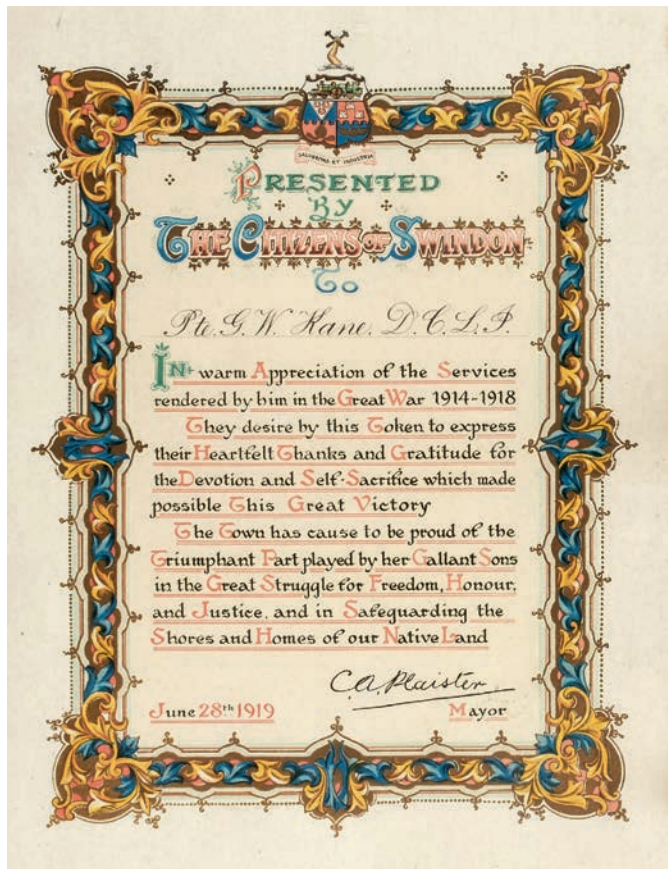 SALUBRITAS ET INDUSTRIA
PRESENTED
BY
THE CITIZENS OF SWINDON
To
Pte. G. W. Hane. D. C. L. I.
IN warm Appreciation of the Services
rendered by him in the Great War 1914-1918
They desire by this Token to express
their Heartfelt Thanks and Gratitude for
the Devotion and Self-Sacrifice which made
possible This Great Victory
The Town has cause to be proud of the
Triumphant Part played by her Gallant Sons
in the Great Struggle for Freedom, Honour,
and Justice, and in Safeguarding the
Shores and Homes of our Native Land
C.A. Plaister
June 28th 1919
Mayor